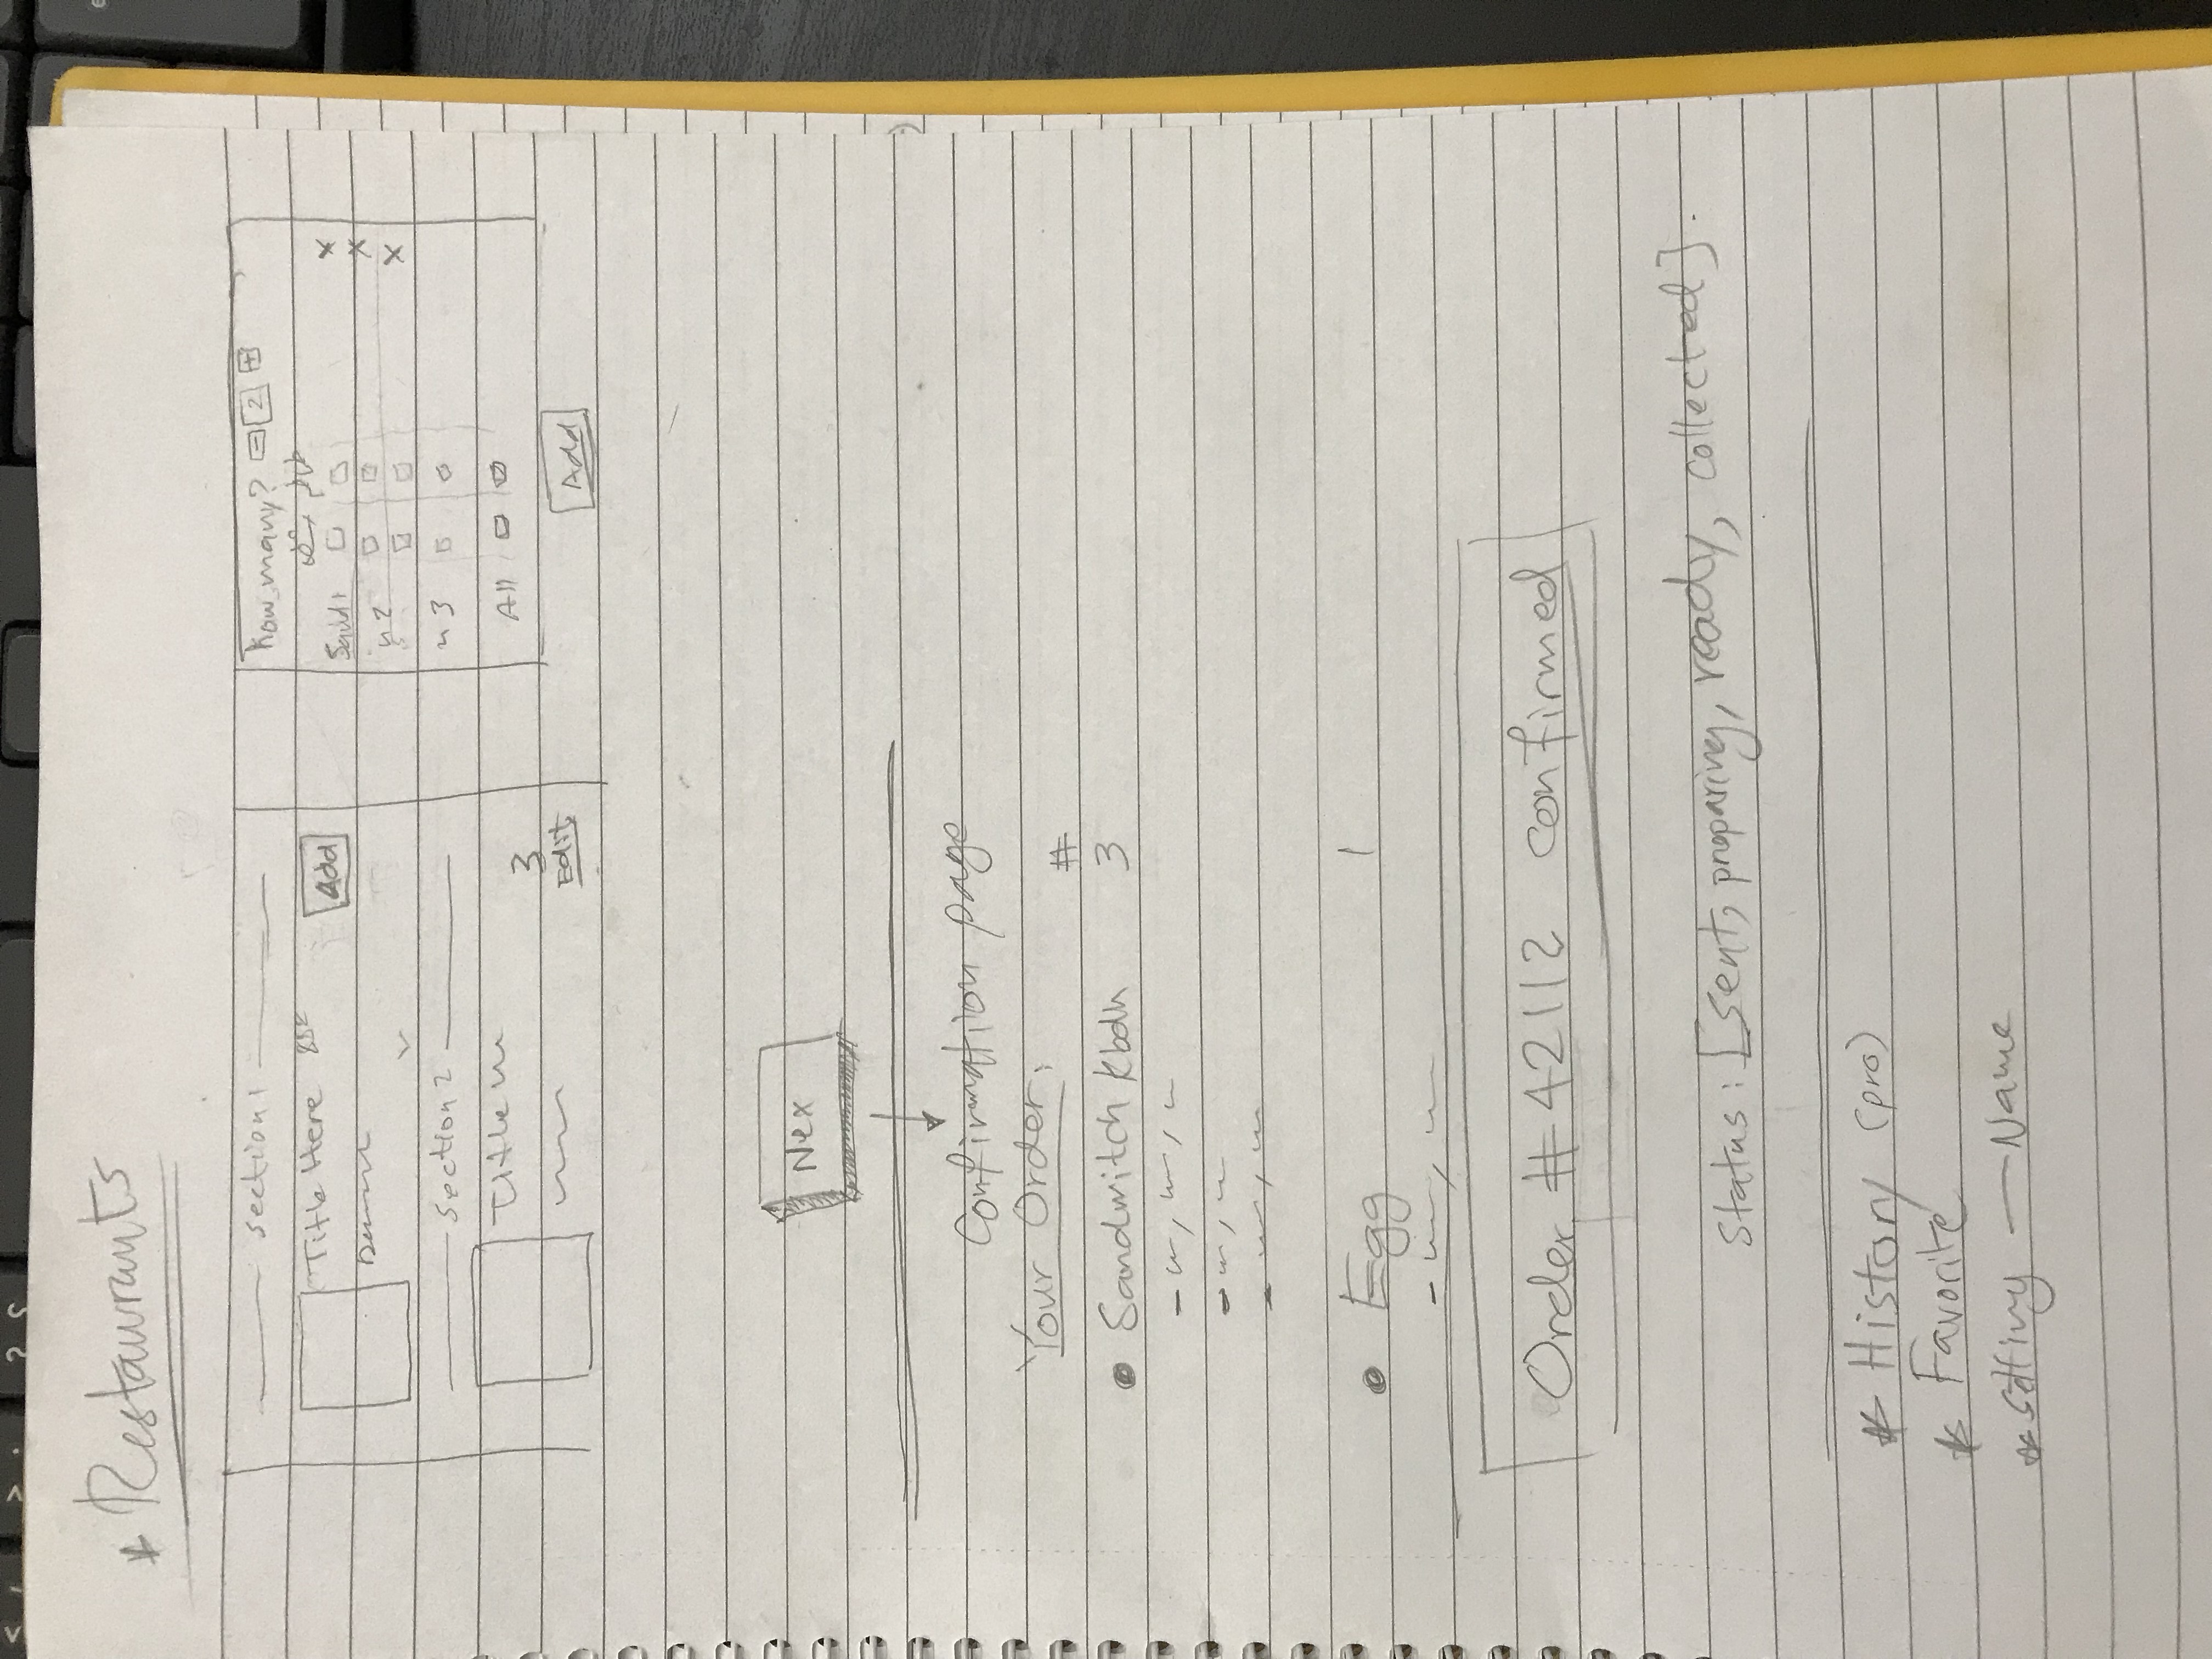 * Restaurants
Section 1
Title Here
Add
Section 2
Title
3
Edit
How many? - 2 +
Sand 1
" 2
" 3
All
Add
Nex
Confirmation page
Your Order:
#
Sandwitch Kbdh 3
Egg 1
Order #42112 confirmed
Status: [sent, preparing, ready, collected].
* History (pro)
* Favorite
* Setting — Name